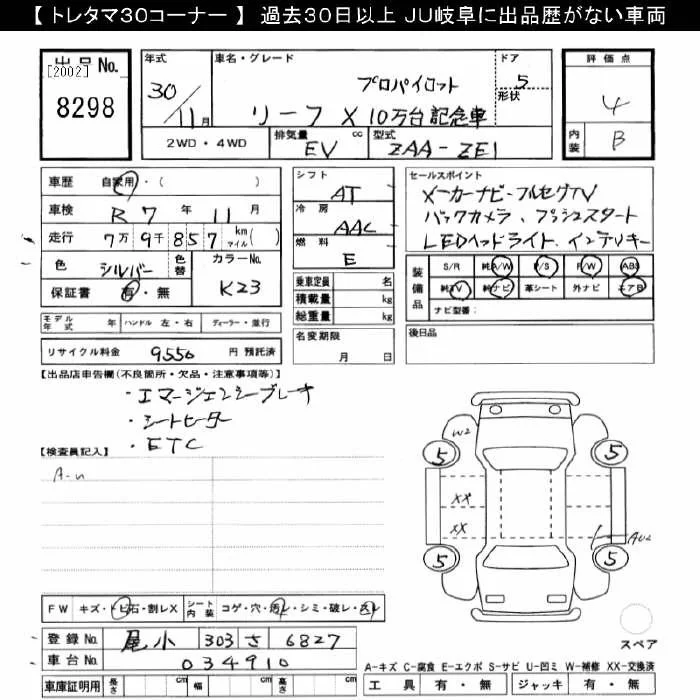 【 トレタマ30コーナー 】 過去30日以上 JU岐阜に出品歴がない車両
出品No.
[2002]
8298
年式
30/11月
車名・グレード
プロパイロット
リーフ X 10万台記念車
ドア
5
形状
評価点
4
内装
B
2WD・4WD
排気量 cc
EV
型式
ZAA-ZE1
車歴 自家用・( )
車検 R7年 11月
走行 7万9千857 km マイル( )
色 シルバー 色替 カラーNo. K23
保証書 有・無
シフト AT
冷房 AAC
燃料 E
乗車定員 名
積載量 kg
総重量 kg
名変期限
月 日
セールスポイント
メーカーナビ・フルセグTV
バックカメラ、プッシュスタート
LEDヘッドライト、インテリキー
装備品 S/R 純A/W P/S P/W ABS
純TV 純ナビ 革シート 外ナビ エアB
ナビ型番:
後日品
モデル年式 年 ハンドル 左・右 ディーラー・並行
リサイクル料金 9550 円 預託済
【出品店申告欄(不良箇所・欠品・注意事項等)】
・エマージェンシーブレーキ
・シートヒーター
・ETC
【検査員記入】
A-u
W2
5
5
XX
XX
5
5
AU2
スペア
FW キズ・トビ石・割レX シート内装 コゲ・穴・汚レ・シミ・破レ・
登録No. 尾小 303 さ 6827
車台No. 034910
車庫証明用 長さ cm 幅 cm 高さ cm
A-キズ C-腐食 E-エクボ S-サビ U-凹ミ W-補修 XX-交換済
工具 有・無 ジャッキ 有・無